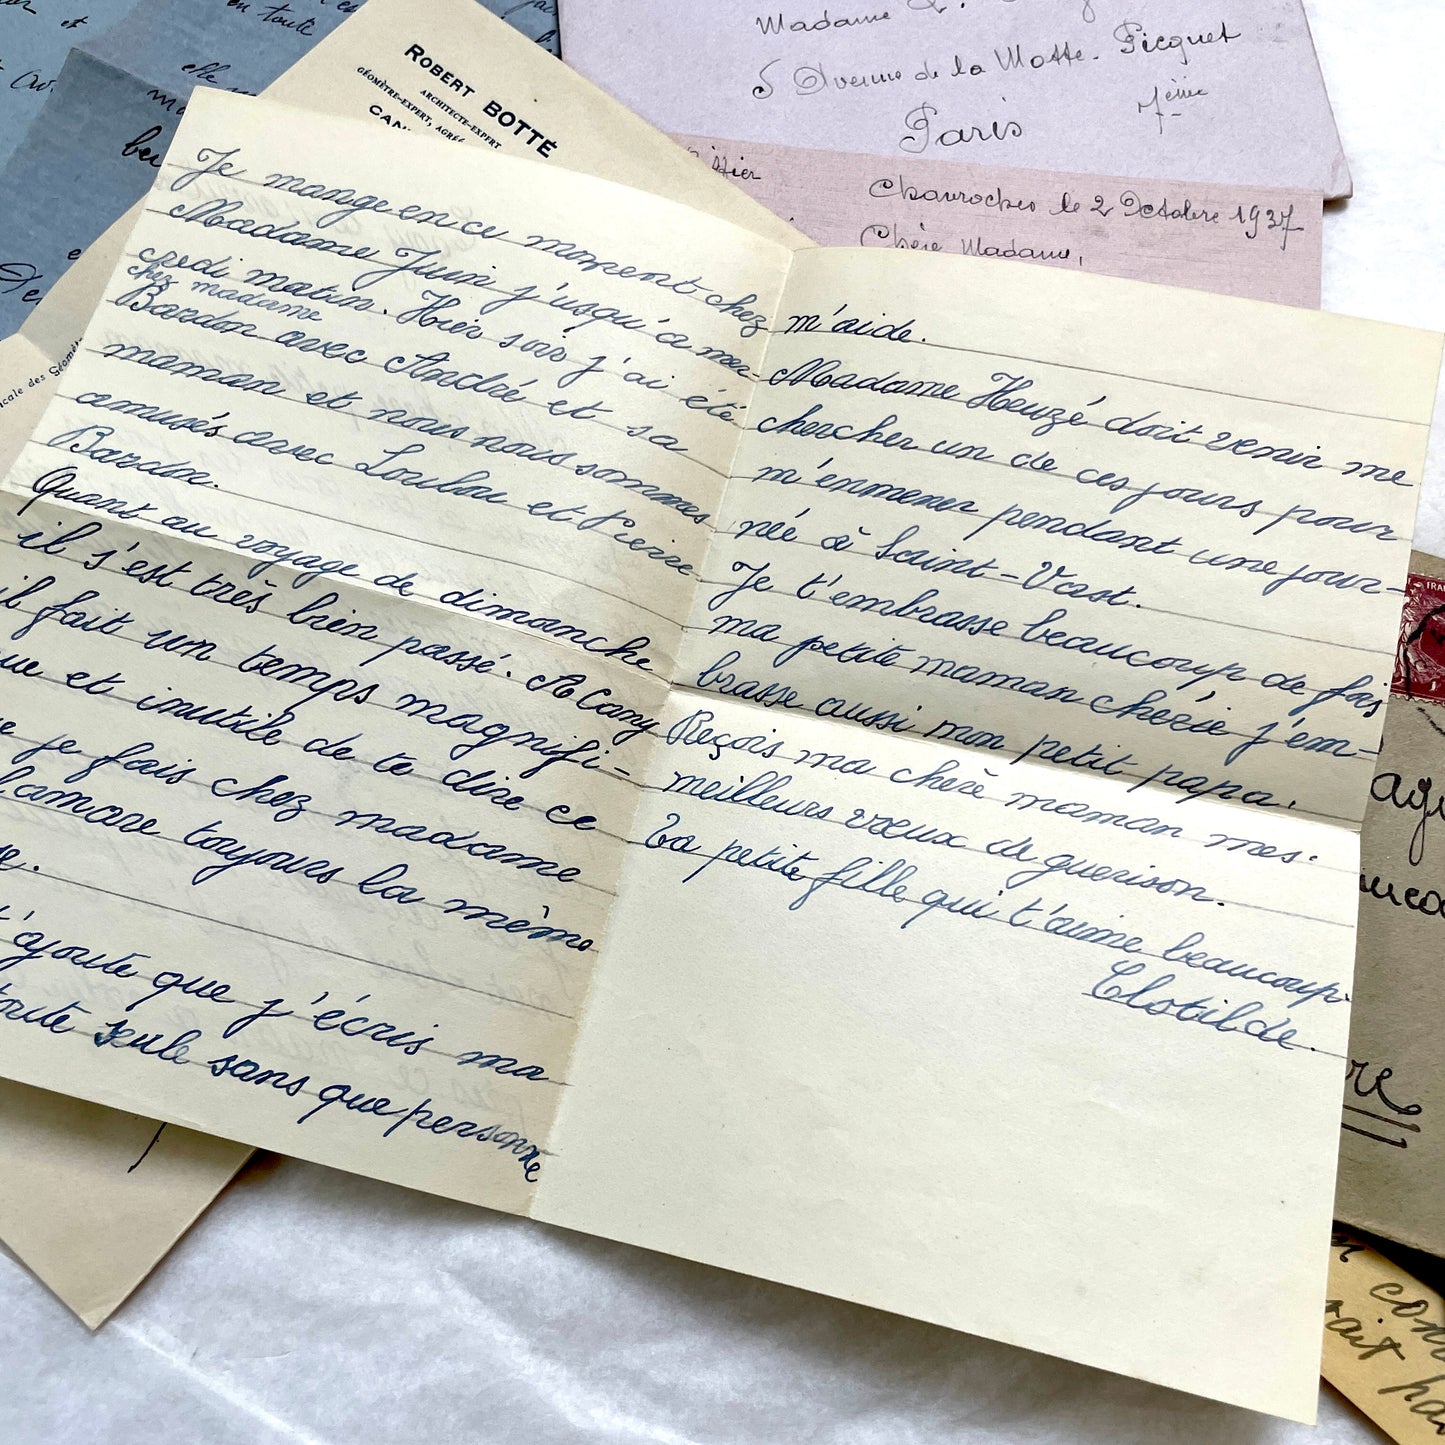 et
en toute
elle
ROBERT BOTTÉ
ARCHITECTE-EXPERT
GÉOMÈTRE-EXPERT, AGRÉÉ
CAN
Madame
5 Avenue de la Motte-Picquet
7ème
Paris
Chavroches le 2 Octobre 1937
Chère Madame,
Je mange en ce moment chez
Madame Juin j'usqu'a mer-
credi matin. Hier soir j'ai été
chez madame
Bardon avec André et sa
maman et nous nous sommes
amusés avec Loulou et Pierre
Bardon.
Quant au voyage de dimanche
il s'est très bien passé. A Cany
il fait un temps magnifi-
que et inutile de te dire ce
que je fais chez madame
toujours la même
t'ajoute que j'écris ma
toute seule sans que personne
m'aide.
Madame Heuzé doit venir me
chercher un de ces jours pour
m'enmener pendant une jour-
née à Saint-Vast.
Je t'embrasse beaucoup de fois
ma petite maman cherie j'em-
brasse aussi mon petit papa.
Reçois ma chère maman mes
meilleurs vœux de guerison.
Ta petite fille qui t'aime beaucoup.
Clotilde.